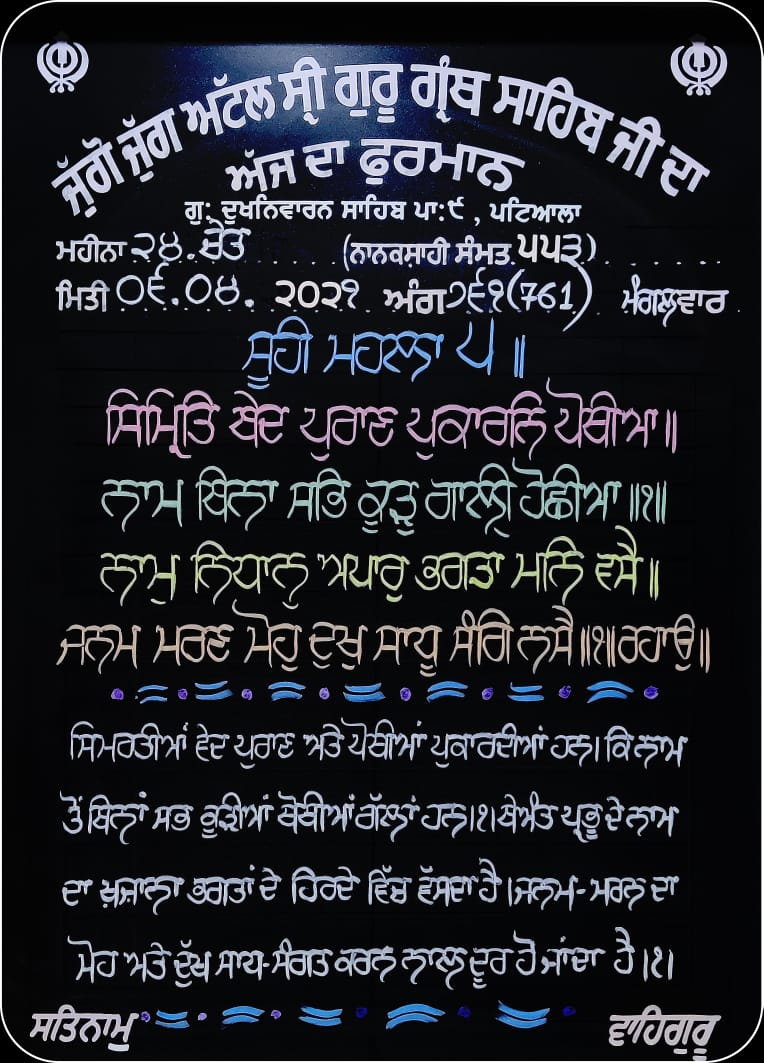 ਜੁੱਗੋ ਜੁੱਗ ਅਟੱਲ ਸ੍ਰੀ ਗੁਰੂ ਗ੍ਰੰਥ ਸਾਹਿਬ ਜੀ ਦਾ
ਅੱਜ ਦਾ ਫੁਰਮਾਨ
ਗੁ: ਦੁਖਨਿਵਾਰਨ ਸਾਹਿਬ ਪਾ:੯ , ਪਟਿਆਲਾ
ਮਹੀਨਾ ੨੪.ਚੇਤ (ਨਾਨਕਸ਼ਾਹੀ ਸੰਮਤ ੫੫੩)
ਮਿਤੀ ੦੬.੦੪. ੨੦੨੧ ਅੰਗ ੭੬੧(761) ਮੰਗਲਵਾਰ
ਸੂਹੀ ਮਹਲਾ ੫ ॥
ਸਿਮ੍ਰਿਤਿ ਬੇਦ ਪੁਰਾਣ ਪੁਕਾਰਨਿ ਪੋਥੀਆ॥
ਨਾਮ ਬਿਨਾ ਸਭਿ ਕੂੜੁ ਗਾਲੀ੍ ਹੋਛੀਆ॥੧॥
ਨਾਮੁ ਨਿਧਾਨੁ ਅਪਾਰੁ ਭਗਤਾ ਮਨਿ ਵਸੈ॥
ਜਨਮ ਮਰਣ ਮੋਹੁ ਦੁਖੁ ਸਾਧੂ ਸੰਗਿ ਨਸੈ॥੧॥ਰਹਾਉ॥
ਸਿਮਰਤੀਆਂ ਵੇਦ ਪੁਰਾਣ ਅਤੇ ਪੋਥੀਆਂ ਪੁਕਾਰਦੀਆਂ ਹਨ। ਕਿ ਨਾਮ
ਤੋਂ ਬਿਨਾਂ ਸਭ ਕੂੜੀਆਂ ਥੋਥੀਆਂ ਗੱਲਾਂ ਹਨ।੧।ਬੇਅੰਤ ਪ੍ਰਭੂ ਦੇ ਨਾਮ
ਦਾ ਖ਼ਜ਼ਾਨਾ ਭਗਤਾਂ ਦੇ ਹਿਰਦੇ ਵਿੱਚ ਵੱਸਦਾ ਹੈ।ਜਨਮ-ਮਰਨ ਦਾ
ਮੋਹ ਅਤੇ ਦੁੱਖ ਸਾਧ-ਸੰਗਤ ਕਰਨ ਨਾਲ ਦੂਰ ਹੋ ਜਾਂਦਾ ਹੈ।੧।
ਸਤਿਨਾਮੁ ਵਾਹਿਗੁਰੂ